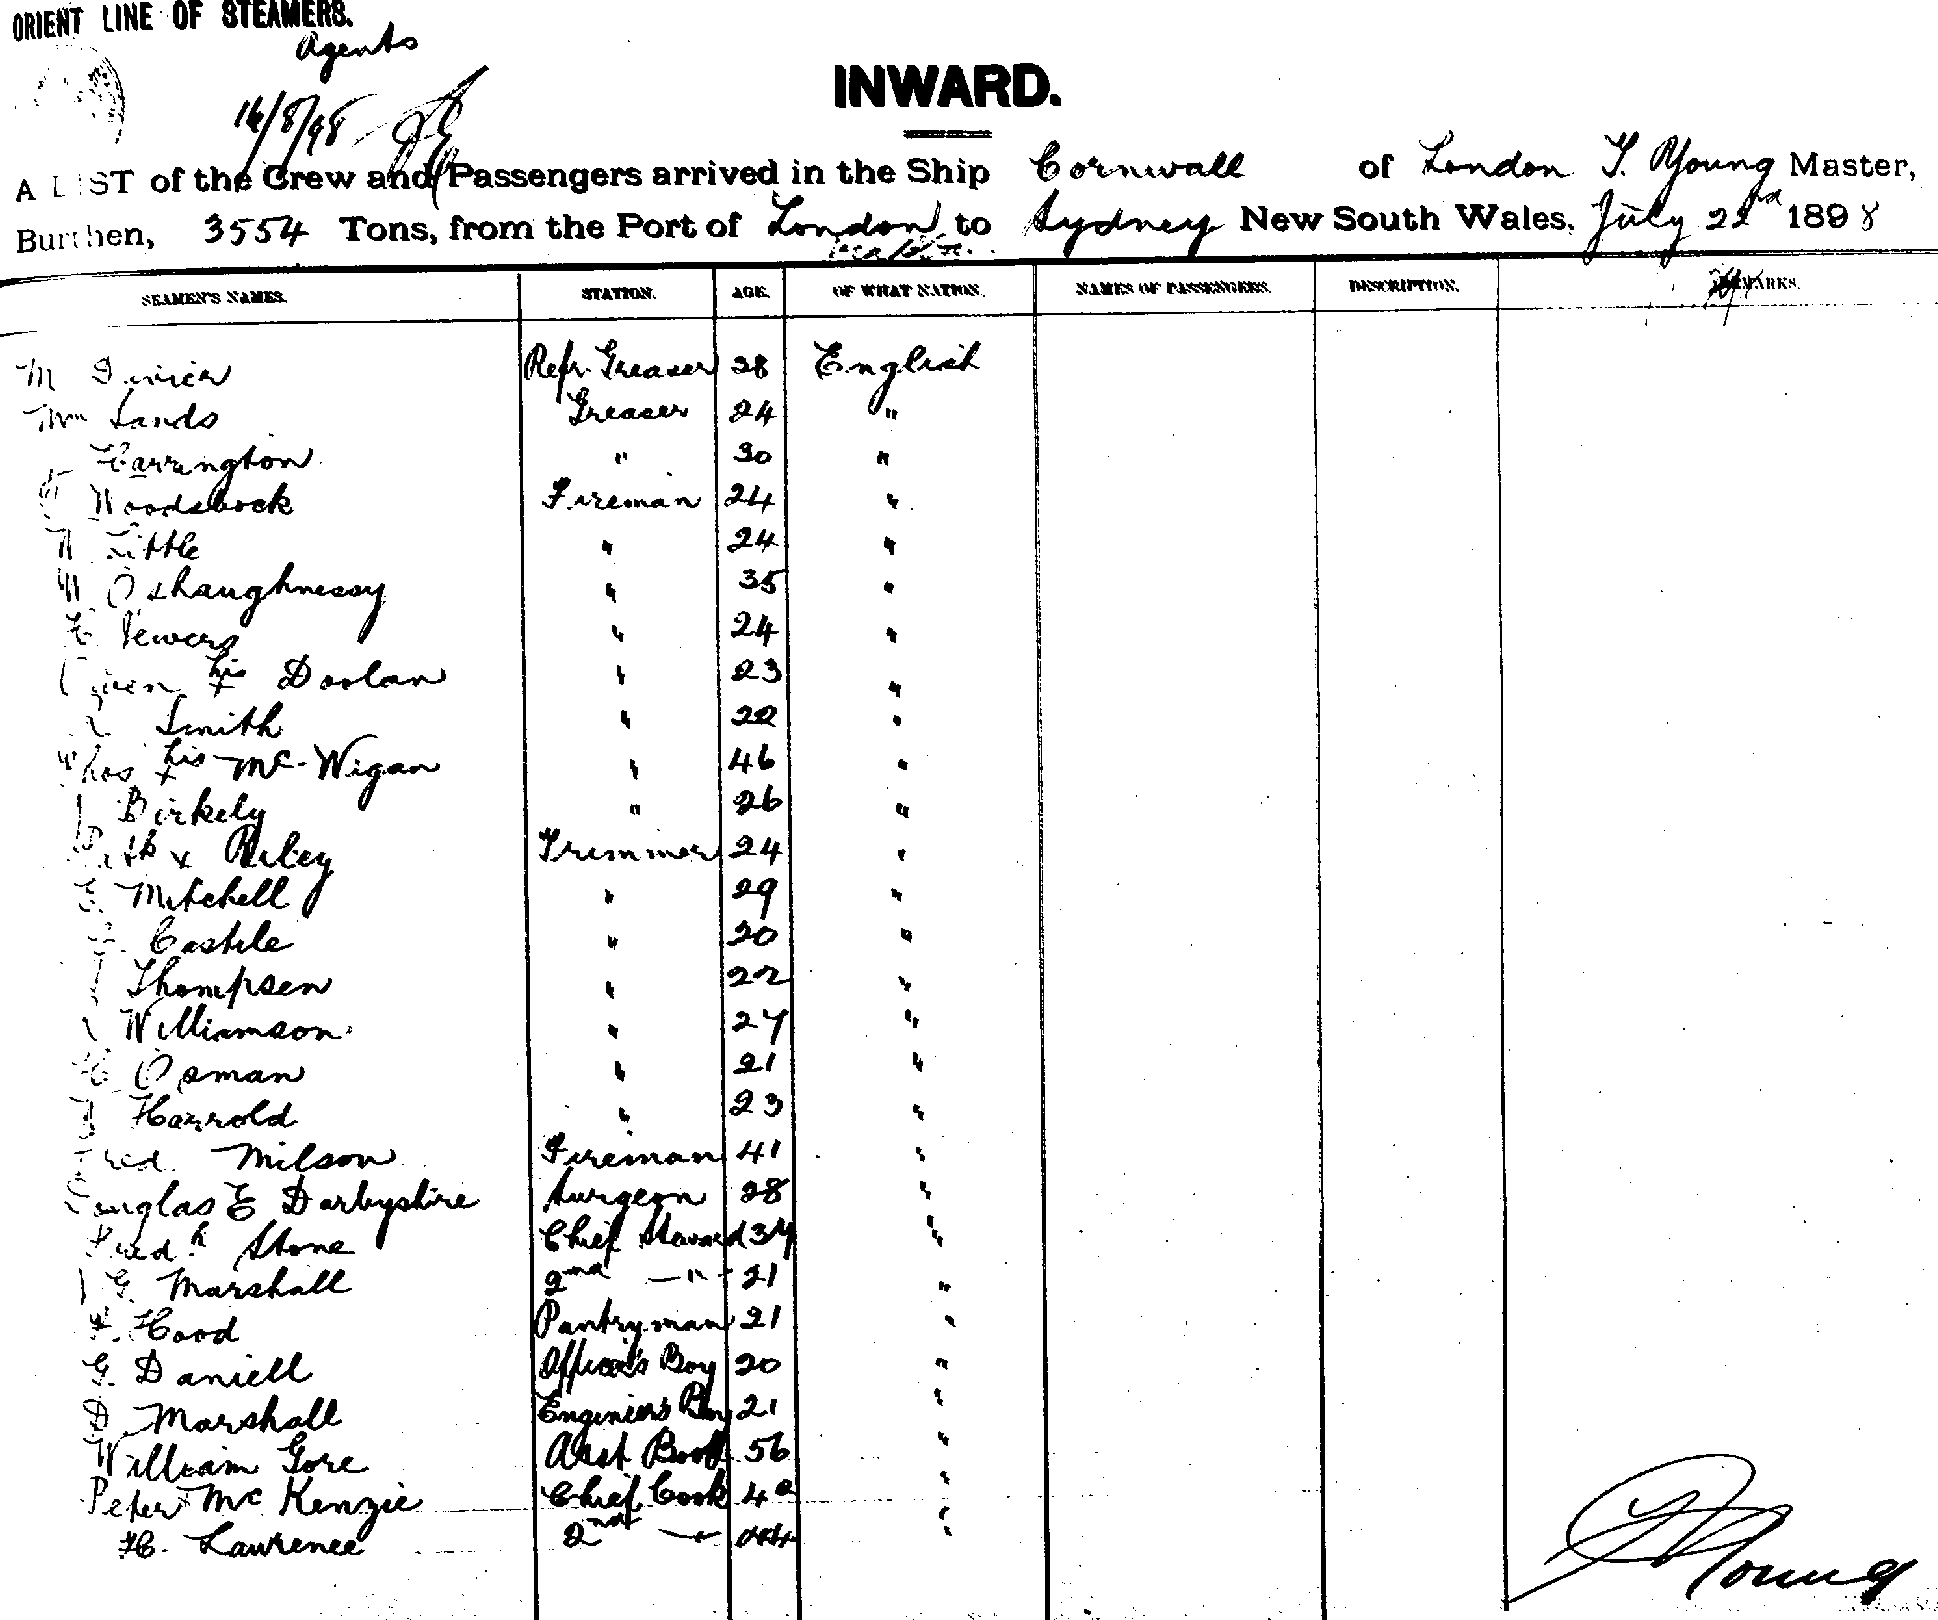 ORIENT LINE OF STEAMERS.
Agents
16/8/98
INWARD.
A LIST of the Crew and Passengers arrived in the Ship Cornwall of London T. Young Master,
Burthen, 3554 Tons, from the Port of London to Sydney New South Wales, July 22nd 1898
SEAMEN'S NAMES. STATION. AGE. OF WHAT NATION. NAMES OF PASSENGERS. DESCRIPTION. REMARKS.
M Refr. Greaser 28 English
Wm Sands Greaser 24 "
Harrington " 30 "
Woodstock Fireman 24 "
Little " 24 "
M O'Shaughnessy " 35 "
" 24 "
Owen his x Doolan " 23 "
Smith " 22 "
Thos his x Mc Wigan " 46 "
Birkely " 26 "
Patk x Riley Trimmer 24 "
Mitchell " 29 "
Castile " 20 "
Thompsen " 22 "
Williamson " 27 "
H Osman " 21 "
Harrold " 23 "
Fred Milson Fireman 41 "
Douglas E Darbyshire Surgeon 28 "
Fredk Stone Chief Steward 34 "
G. Marshall 2nd — " — 21 "
F. Hood Pantryman 21 "
G. Daniell Officer's Boy 20 "
D. Marshall Engineers Boy 21 "
William Gore Asst Cook 56 "
Peter Mc Kenzie Chief Cook 40 "
H. Lawrence 2nd — " 24 "
T Young